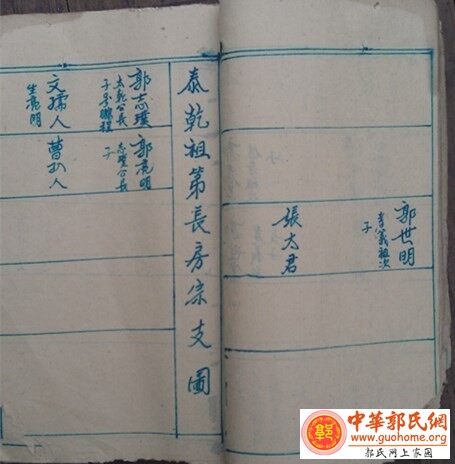 郭世明
孝義祖次
子
張太君
泰乾祖第長房宗支圖
郭志璞
太乾公長
子号
文孺人
生亮明
郭亮明
志璞公長
子
曹 人
中華郭氏網
www.guohome.org
郭氏网上家园